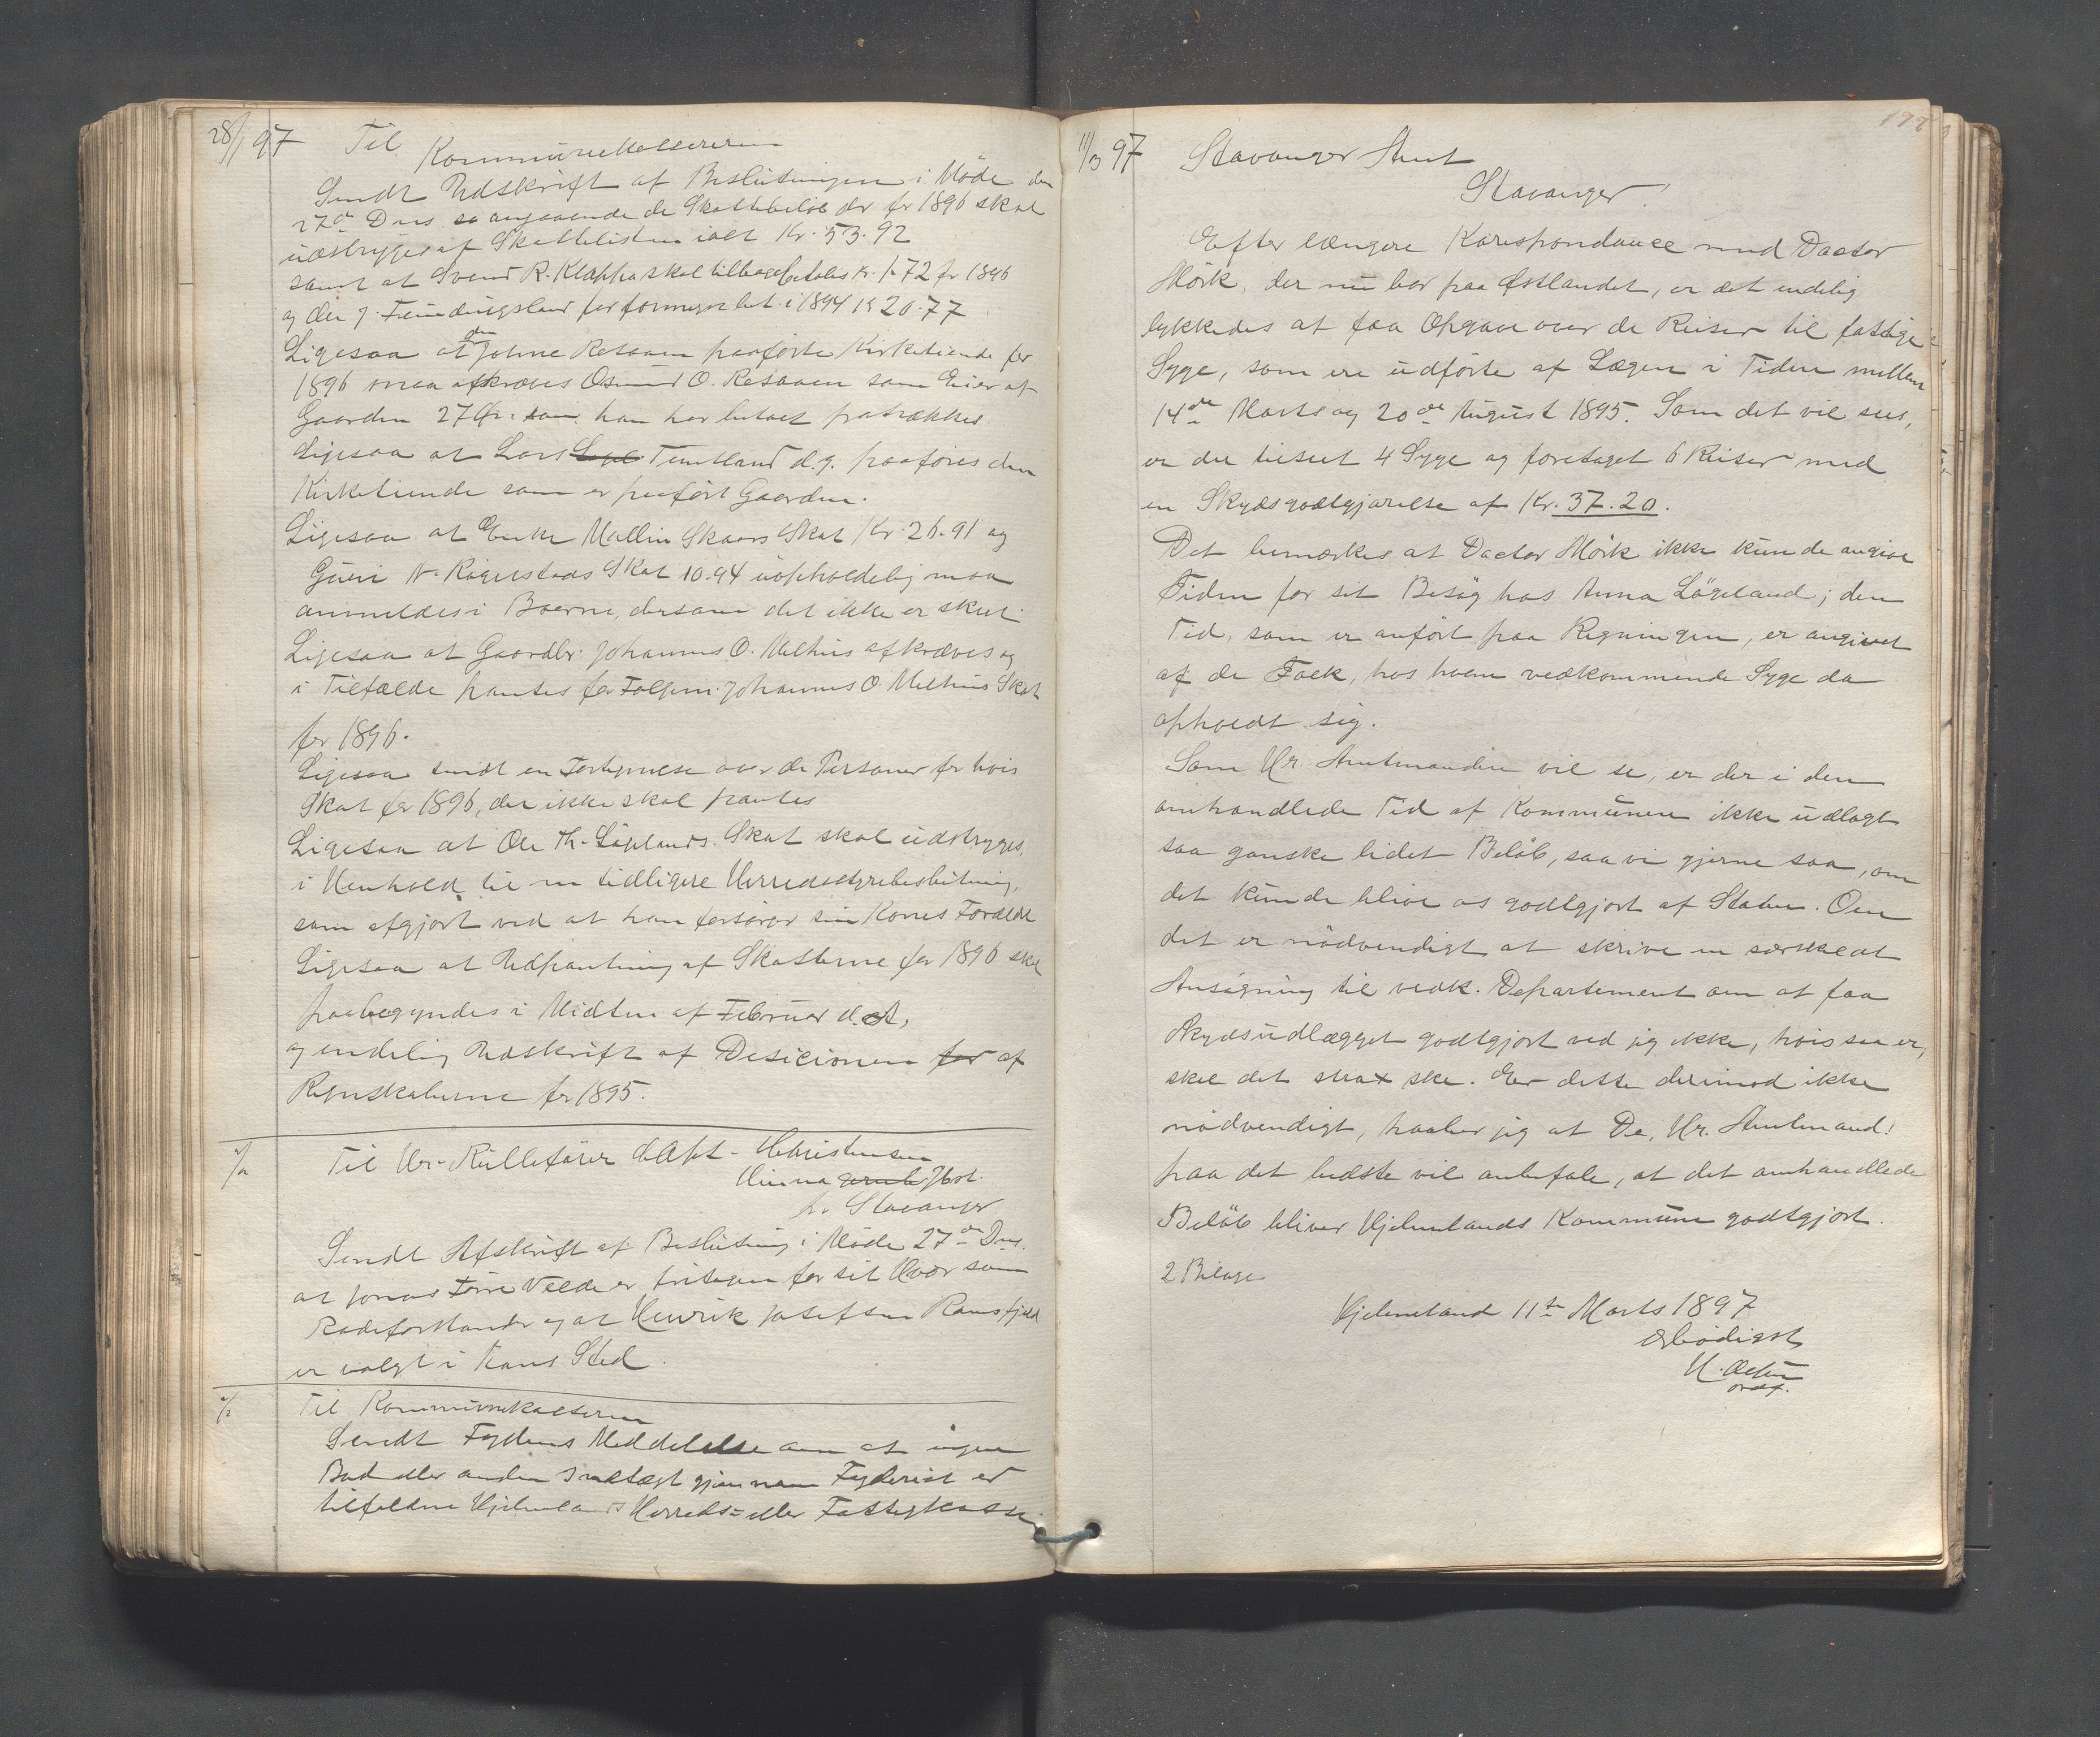 28/1 97 Til
Kommunekassereren
Sendt Udskrift af Beslutningen i Møde den
27de Dns angaaende de Skattebeløb der for 1896 skal
udstryges af Skattelisten ialt Kr. 53.92
samt at Svend R. Kleppa skal tilbagebetales Kr. 1.72 for 1896
og for formeget bet. i 1894 Kr 20.77
Ligesaa at den Johne Resaaen paaførte Kirketiende for
1896 maa afkræves Osmund O. Resaaen som Eier af
Gaarden 27 Øre som han har betalt fratrækkes
Ligesaa at Lars Tentland d.y. paaføres den
Kirketiende som er paaført Gaarden.
Ligesaa at Enke Mallin Skaars Skat Kr. 26.91 og
Guri N. Ragnstads Skat 10.94 uopholdelig maa
anmeldes i Boerne, dersom det ikke er skeet.
Ligesaa at Gaardbr. Johannes O. Melhus afkræves og
i Tilfælde pantes for Følgem. Johannes O. Melhus Skat
for 1896.
Ligesaa sendt en Fortegnelse over de Personer for hvis
Skat for 1896, der ikke skal pantes
Ligesaa at Ole Th. Løgelands Skat skal udstryges,
i Henhold til en tidligere Herredsstyrebeslutning,
som afgjort ved at han forsørger sin Kones Forældre
Ligesaa at Udpantning af Skatterne for 1896 skal
paabegyndes i Midten af Februar d.A.,
og endelig Udskrift af Desicionen for af
Regnskaberne for 1895.
Til Hr. Rullefører Capt. Christensen
Hinna Post.
pr. Stavanger
Sendt Afskrift af Beslutning i Møde 27de Dns.
at Jonas Tøre Velde er fritagen for sit Hverv som
Rodeforstander og at Henrik Josefsen Ramsfjeld
er valgt i hans Sted.
Til Kommunekasseren
Sendt Fogdens Meddelelse om at ingen
Bod eller anden Indtægt gjennem Fogderiet er
tilfalden Hjelmelands Herreds= eller Fattigkasse
11/3 97 Stavanger Amt
Stavanger!
Efter længere Korespondance med Doctor
Mörk, der nu bor paa Østlandet, er det endelig
lykkedes at faa Opgave over de Reiser til fattige
Syge, som ere udförte af Lægen i Tiden mellem
14de Marts og 20de August 1895. Som det vil sees,
er der tilseet 4 Syge og foretaget 6 Reiser med
en Skydsgodtgjørelse af Kr. 37.20.
Det bemærkes at Doctor Mörk ikke kunde angive
Tiden for sit Besøg hos Anna Lögeland; den
Tid, som er anført paa Regningen, er angivet
af de Folk, hos hvem vedkommende Syge da
opholdt sig.
Som Hr. Amtmanden vil se, er der i den
omhandlede Tid af Kommunen ikke udlagt
saa ganske lidet Beløb, saa vi gjerne saa, om
det kunde blive os godtgjort af Staten. Om
det er nødvendigt at skrive en særskilt
Ansøgning til vedk. Departement om at faa
Skydsudlægget godtgjort ved jeg ikke, hvis saa er,
skal det strax ske. Er dette derimod ikke
nødvendigt, haaber jeg at De, Hr. Amtmand!
paa det bedste vil anbefale, at det omhandlede
Beløb bliver Hjelmelands Kommune godtgjort.
2 Bilage
Hjelmeland 11te Marts 1897
ærbødigst
ordf.